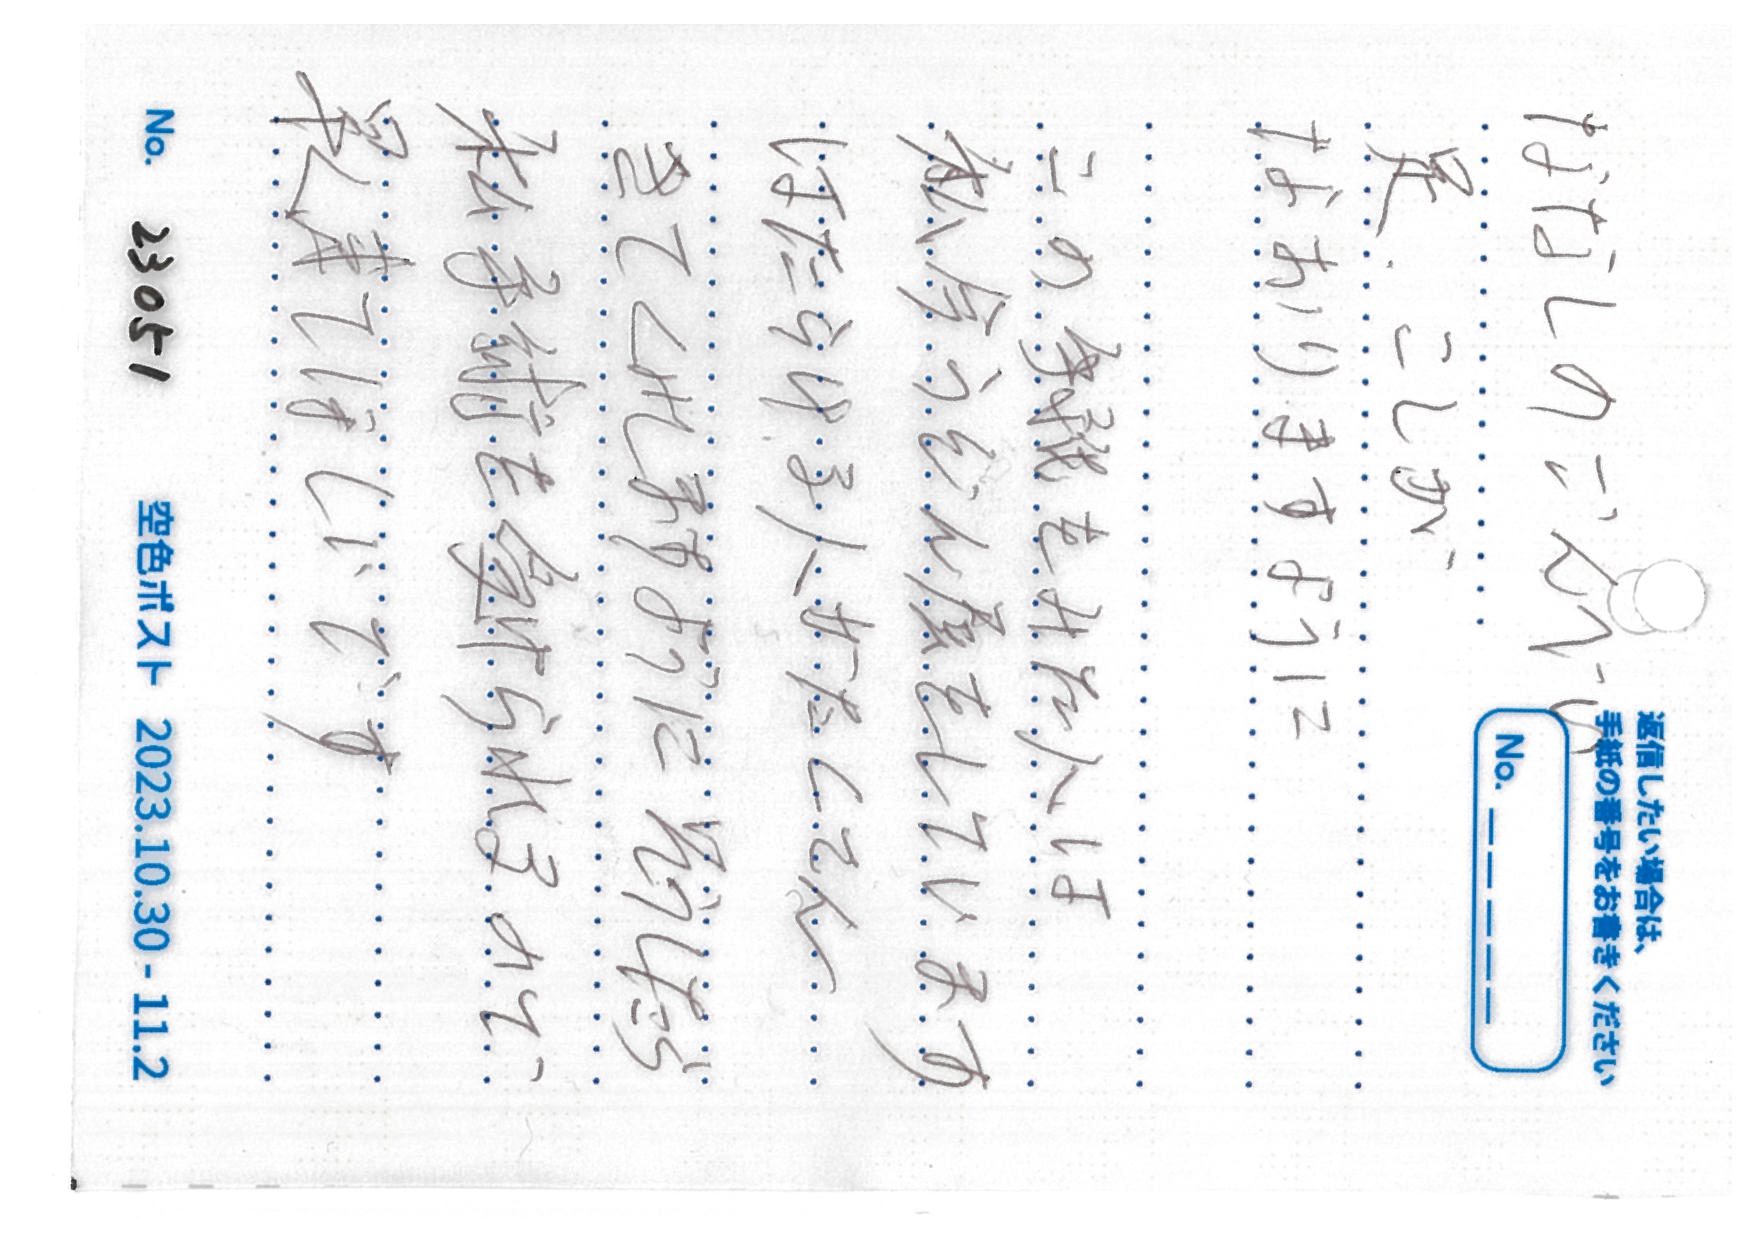 返信したい場合は、
手紙の番号をお書きください
ななしのごんべい
No. _ _ _ _ _
足、こしが
なおりますように
この手紙をみた人は
私今うどん屋をしています
はたらける人がたくさん
きてくれますように そうしたら
私手術を受けられるので
早く来てほしいです
No. 23051 空色ポスト 2023.10.30 - 11.2